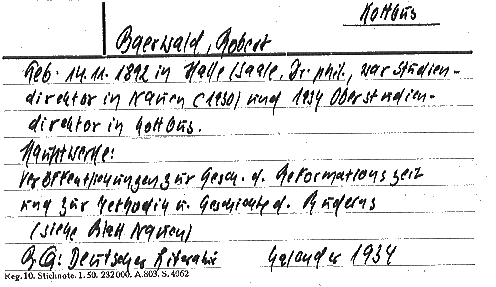 Kottbus
Baerwald, Robert
Geb. 14.11.1892 in Halle/Saale, Dr. phil., war Studien-
direktor in Nauen (1930) und 1934 Oberstudien-
direktor in Cottbus.
Hauptwerke:
Veröffentlichungen zur Gesch. d. Reformationszeit
und zur Methodik u. Geschichte d. Ruderns
(siehe Blatt Nauen)
Deutscher Literatur Kalender 1934
Reg. 10. Stichnote. 1. 50. 232000. A.803. S. 4062